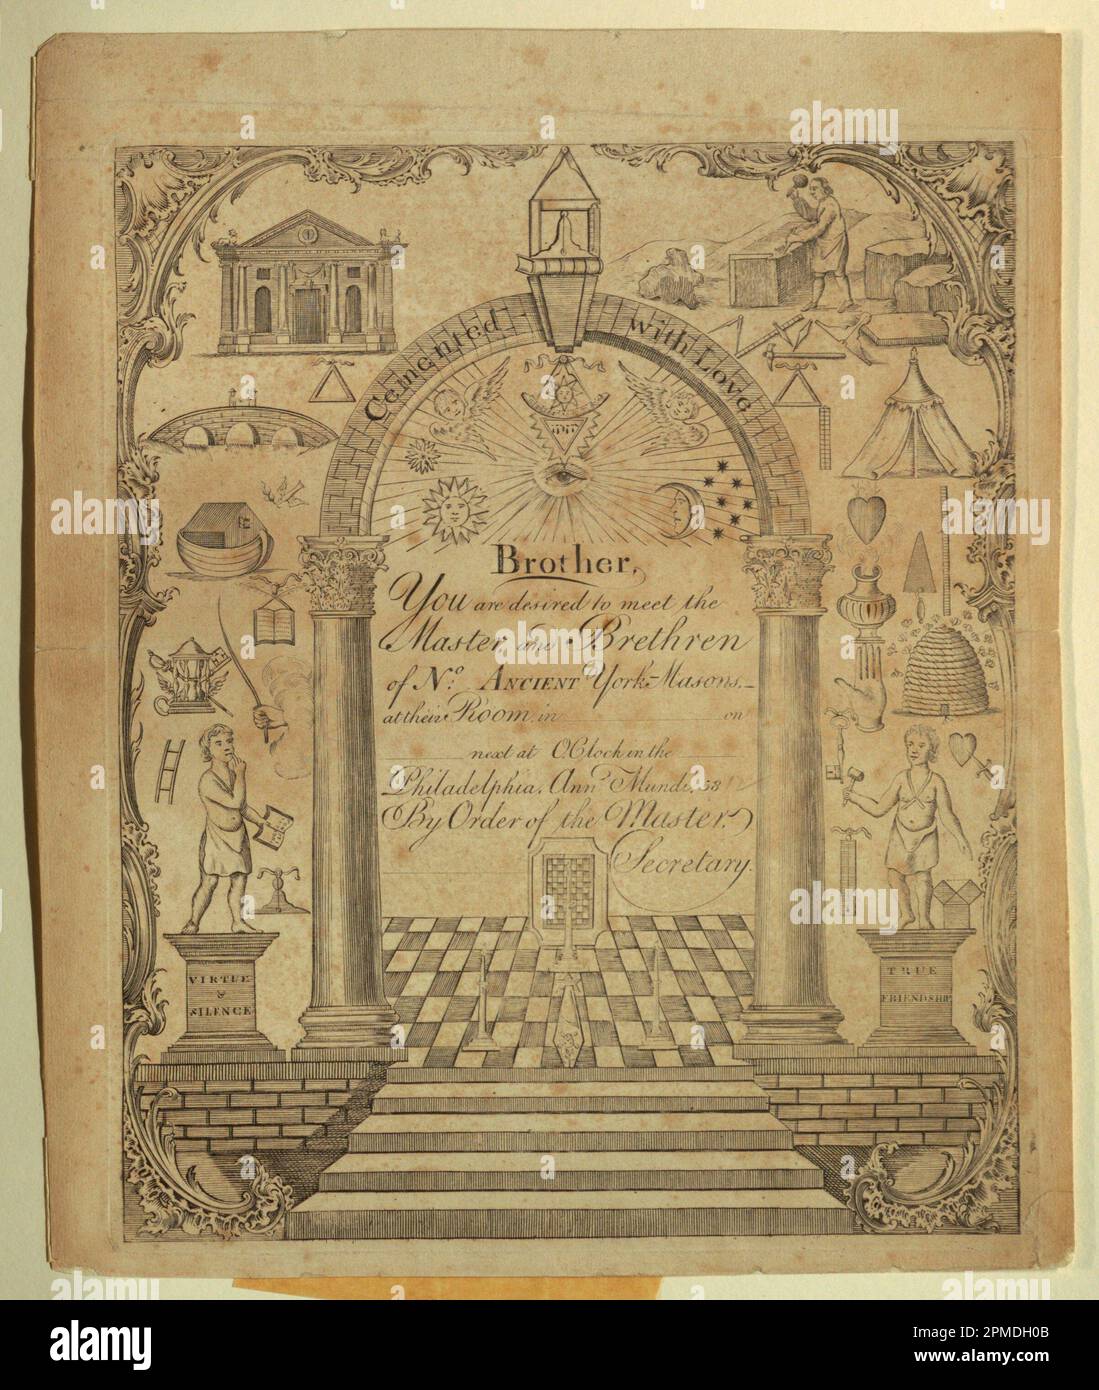 Cemented with Love
Brother,
You are desired to meet the
Master and Brethren
of No. ANCIENT York-Masons.
at their Room in on
next at O,Clock in the
Philadelphia, Anno Mundi, 58
By Order of the Master.
Secretary.
VIRTUE
&
SILENCE
TRUE
FRIENDSHIP
alamy
Image ID: 2PMDH0B
www.alamy.com